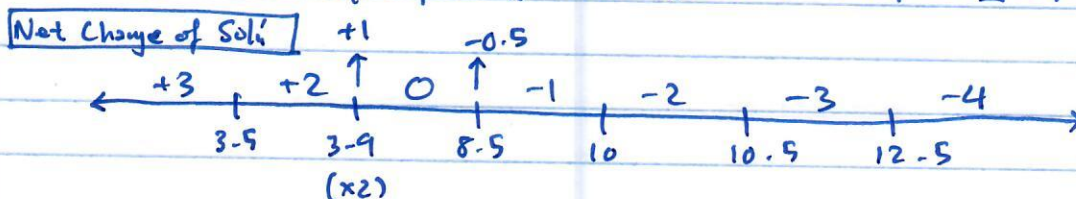 Net Charge of Solⁿ
+1 -0.5
+3 +2 0 -1 -2 -3 -4
3.5 3.9 8.5 10 10.5 12.5
(x2)